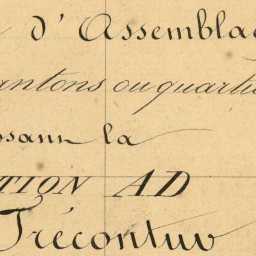 d'Assembla
antons ou quarti
ssant la
TION AD
Trécontuv